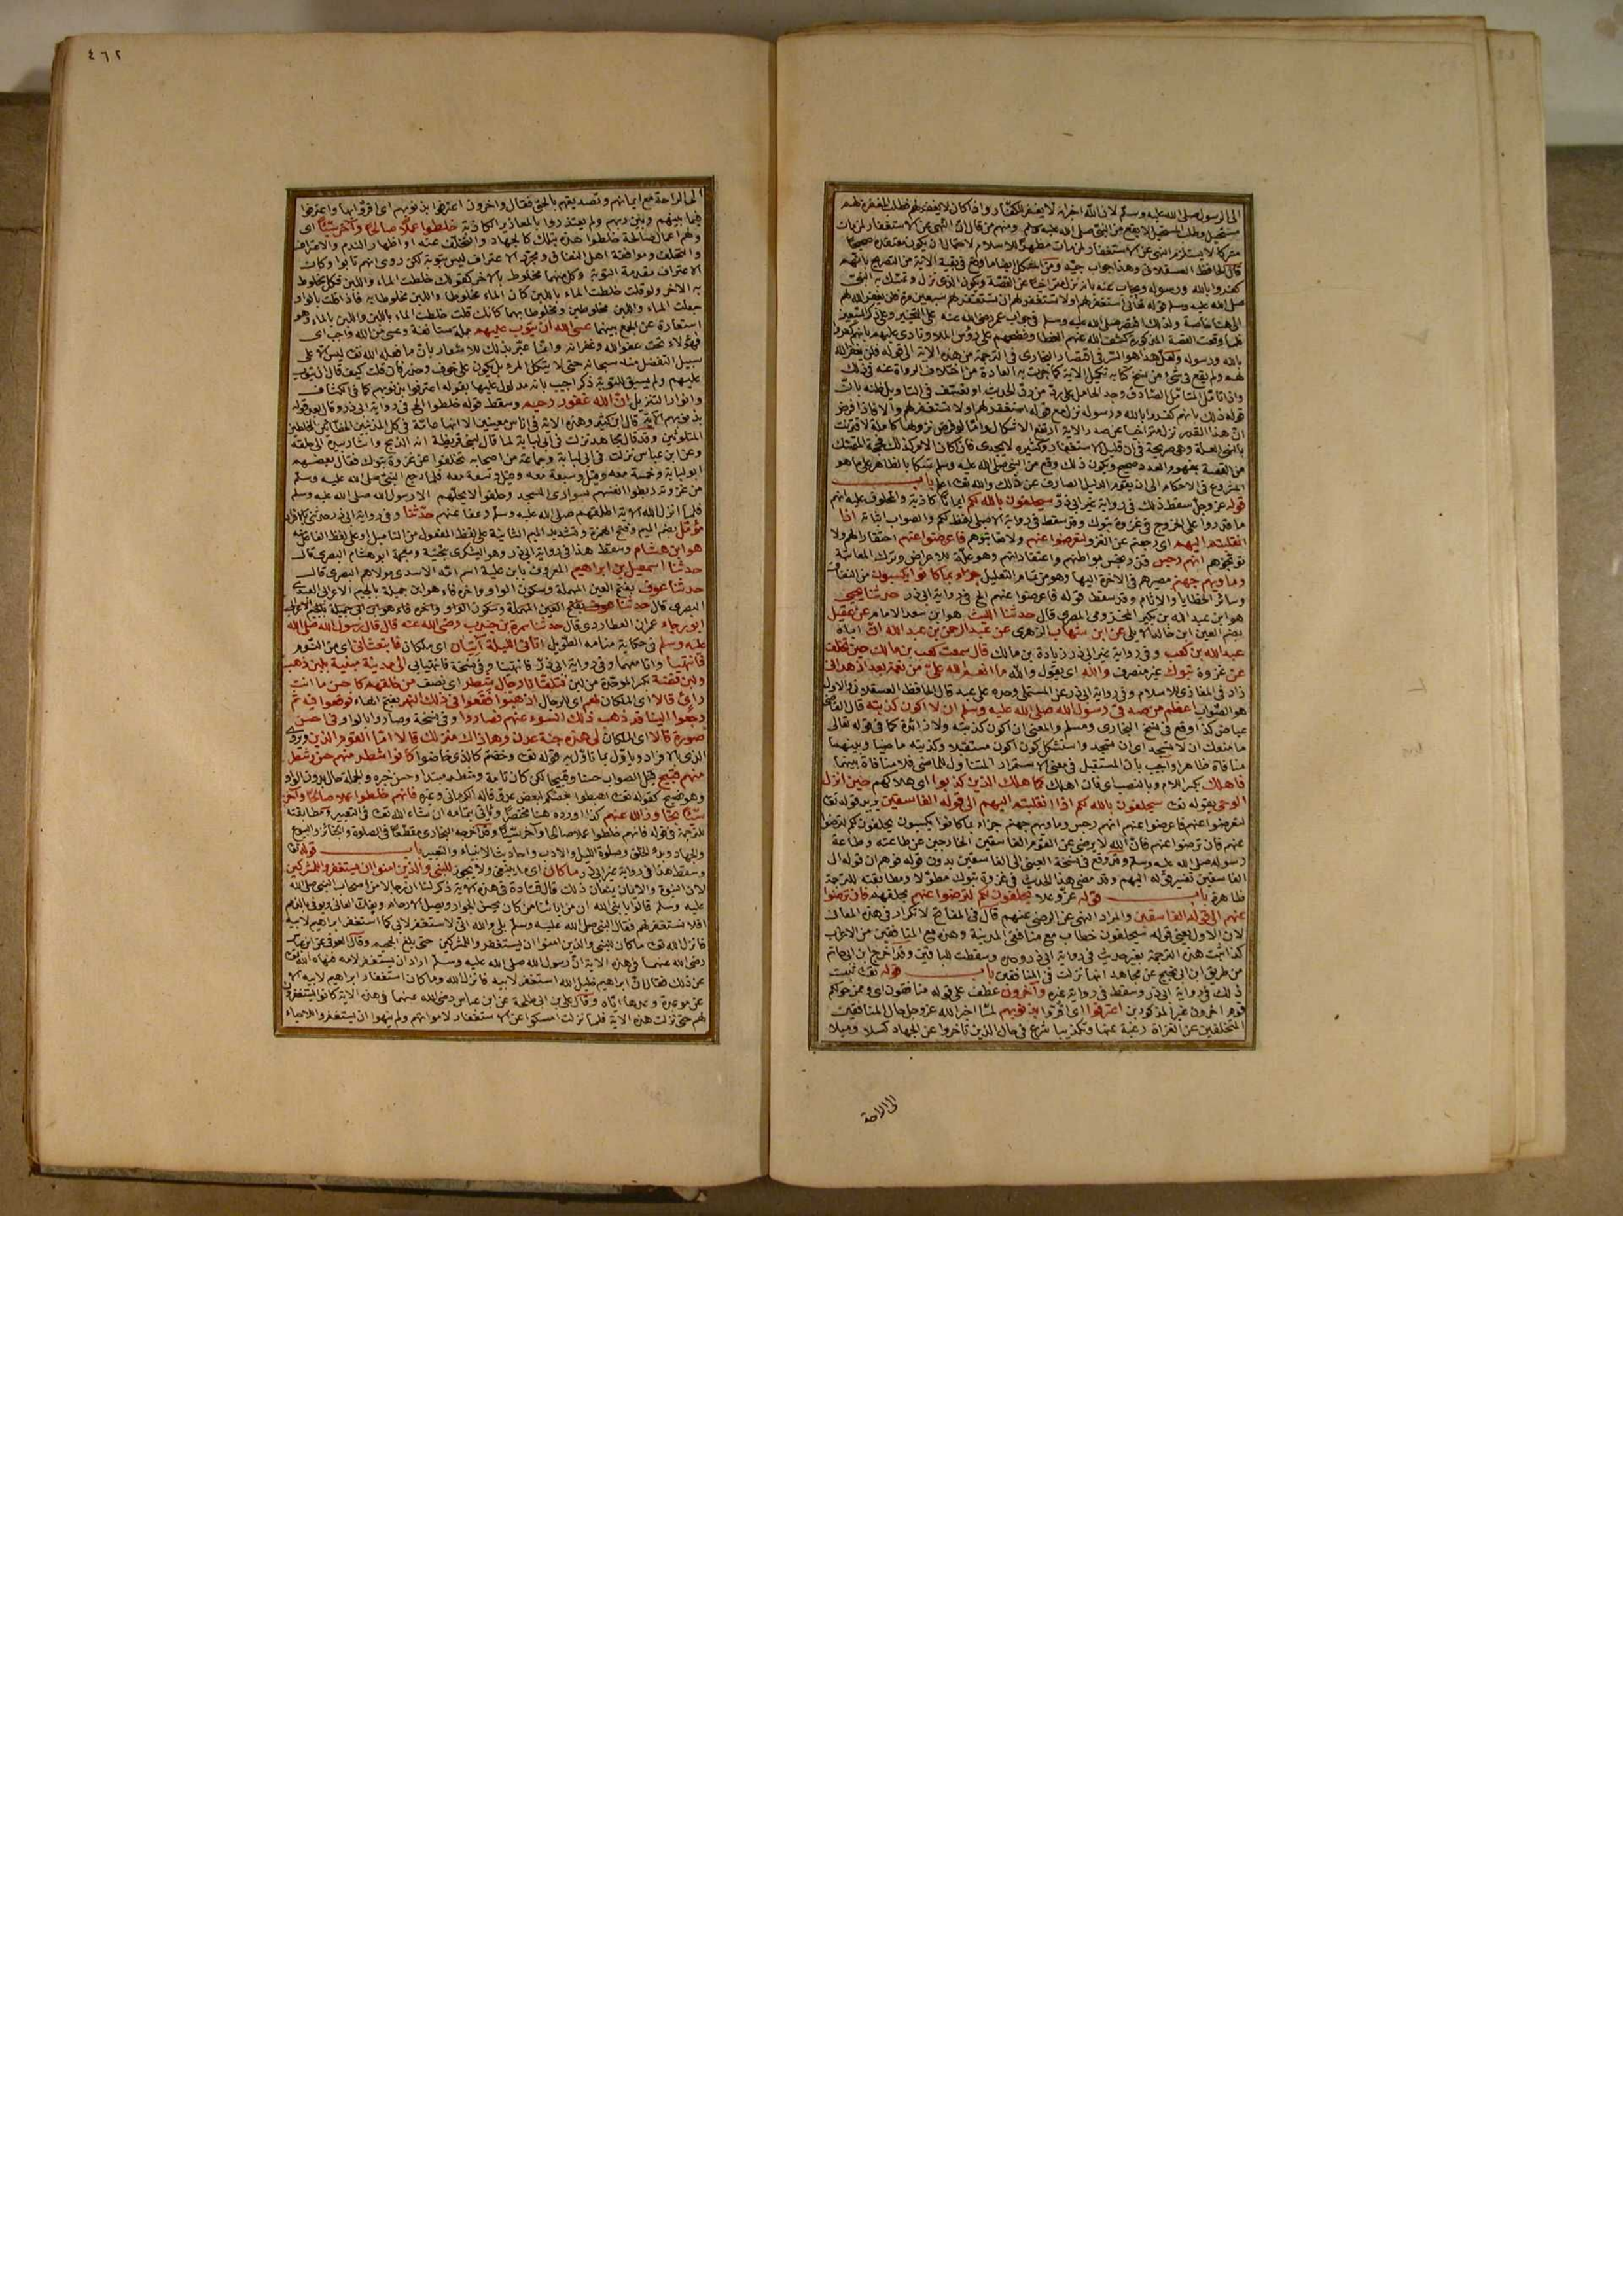 الى الرسول صلى الله عليه وسلم لان الله اخبر انه لا يغفر للكفار واذا كان لا يغفر لهم فطلب المغفرة لهم
مستحيل وطلب المستحيل لا يقع من النبي صلى الله عليه وسلم ومنهم من قال ان النهي عن الاستغفار لمن مات
مشركا لا يستلزم النهي عن الاستغفار لمن مات مظهرا للاسلام لاحتمال ان يكون معتقده صحيحا
قال الحافظ العسقلاني وهذا جواب جيد ومن المشكل ايضا ما وقع في بقية الاية من التصريح بانهم
كفروا بالله ورسوله ويجاب عنه بانه نزل متراخيا عن القصة ويكون الذي نزل وتمسك به النبي
صلى الله عليه وسلم قوله تعالى استغفر لهم او لا تستغفر لهم ان تستغفر لهم سبعين مرة فلن يغفر الله لهم
الى هنا خاصة ولذلك اقتصر صلى الله عليه وسلم في جواب عمر رضي الله عنه على التخيير وعلى ذكر السبعين
فلما وقعت القصة المذكورة كشف الله عنهم الغطا وفضحهم على رؤس الملا ونادى عليهم بانهم كفروا
بالله ورسوله ولعل هذا هو السر في اقتصار البخاري في الترجمة من هذه الاية الى قوله فلن يغفر الله
لهم ولم يقع في شئ من نسخ كتابه تكميل الاية كما جرت به العادة من اختلاف الرواة عنه في ذلك
واذا تامل المتامل الصادق وجد الحامل على رد من رد الحديث او تعسف في التاويل ظنه بان
قوله ذلك بانهم كفروا بالله ورسوله نزل مع قوله استغفر لهم او لا تستغفر لهم
المشروع في الاحكام الى ان يقوم الدليل الصارف عن ذلك والله تعالى اعلم باب
قوله عز وجل سقط ذلك في رواية غير ابي ذر سيحلفون بالله لكم ايمانا كاذبة والمحلوف عليه انهم
ما قدروا على الخروج في غزوة تبوك وقد سقط في رواية الاصيلي لفظ لكم والصواب اثباته اذا
انقلبتم اليهم اي رجعتم عن الغزو لتعرضوا عنهم ولا تعاتبوهم فاعرضوا عنهم احتقارا لهم ولا
توبخوهم انهم رجس
وماويهم جهنم مصيرهم في الاخرة اليها وهو من تمام التعليل جزاء بما كانوا يكسبون من النفاق
وسائر الخطايا والاثام وقد سقط قوله فاعرضوا عنهم الخ في رواية ابي ذر حدثنا يحيى
هو ابن عبد الله بن بكير المخزومي المصري قال حدثنا الليث هو ابن سعد الامام عن عقيل
بضم العين ابن خالد الايلي عن ابن شهاب الزهري عن عبد الرحمن بن عبد الله ان اباه
عبد الله بن كعب وفي رواية غير ابي ذر زيادة بن مالك قال سمعت كعب بن مالك حين تخلف
عن غزوة تبوك غير منصرف والله اي يقول والله ما انعم الله علي من نعمة بعد اذ هداني
زاد في المغازي للاسلام وفي رواية ابي ذر عن المستملي وحده على عبد قال الحافظ العسقلاني والاول
هو الصواب اعظم من صدقي رسول الله صلى الله عليه وسلم ان لا اكون كذبته قال القاضي
عياض كذا وقع في نسخ البخاري ومسلم والمعنى ان اكون كذبته ولا زائدة كما في قوله تعالى
ما منعك ان لا تسجد اي ان تسجد واستشكل كون اكون مستقبلا وكذبته ماضيا وبينهما
منافاة ظاهرا واجيب بان المستقبل في معنى الاستمرار المتناول للماضي فلا منافاة بينهما
فاهلك بكسر اللام وبالنصب اي فان اهلك كما هلك الذين كذبوا اي هلاكهم حين انزل
الوحي بقوله تعالى سيحلفون بالله لكم اذا انقلبتم اليهم الى قوله الفاسقين يريد قوله تعالى
لتعرضوا عنهم فاعرضوا عنهم انهم رجس وماويهم جهنم جزاء بما كانوا يكسبون يحلفون لكم لترضوا
عنهم فان ترضوا عنهم فان الله لا يرضى عن القوم الفاسقين الخارجين عن طاعته وطاعة
رسوله صلى الله عليه وسلم
الفاسقين تفسير قوله اليهم وقد مضى هذا الحديث في غزوة تبوك مطولا ومطابقته للترجمة
ظاهرة باب قوله عز وعلا يحلفون لكم لترضوا عنهم بحلفهم فان ترضوا
عنهم الى قوله الفاسقين والمراد النهي عن الرضى عنهم
لان الاول يعني قوله سيحلفون خطاب مع منافقي المدينة وهذه مع المنافقين من الاعراب
كذا ثبت هذه الترجمة بغير حديث في رواية ابي ذر وحده وسقطت للباقين وقد اخرج ابن ابي حاتم
من طريق ابن ابي نجيح عن مجاهد انها نزلت في المنافقين باب قوله تعالى ثبت
ذلك في رواية ابي ذر وسقط في رواية غيره وآخرون عطف على قوله منافقون اي وممن حولكم
قوم اخرون غير المذكورين اعترفوا اي اقروا بذنوبهم لما اخبر الله عز وجل حال المنافقين
المتخلفين عن الغزاة رغبة عنها وتكذيبا شرع في حال الذين تاخروا عن الجهاد كسلا وميلا
الى الراحة
٤٦٢
الى الراحة مع ايمانهم وتصديقهم بالحق فقال واخرون اعترفوا بذنوبهم اي اقروا بها واعترفوا
فيما بينهم وبين ربهم ولم يعتذروا بالمعاذير الكاذبة خلطوا عملا صالحا وآخر سيئا اي
ولهم اعمال صالحة خلطوا هذه بتلك كالجهاد والتخلف عنه او اظهار الندم والاعتراف
والتخلف وموافقة اهل النفاق ومجرد الاعتراف ليس بتوبة لكن روي انهم تابوا وكان
الاعتراف مقدمة التوبة وكل منهما مخلوط بالاخر كقولك خلطت الماء واللبن فكل مخلوط
به الاخر ولو قلت خلطت الماء باللبن كان الماء مخلوطا واللبن مخلوطا به فاذا قلت بالواو
جعلت الماء واللبن مخلوطين ومخلوطا بهما كانك قلت خلطت الماء باللبن واللبن بالماء وهو
استعارة عن الجمع بينهما عسى الله ان يتوب عليهم جملة مستانفة وعسى من الله واجب اي
فهؤلاء تحت عفو الله وغفرانه وانما عبر بذلك للاشعار بان ما فعله الله تعالى ليس الا على
سبيل التفضل منه سبحانه حتى لا يتكل المرء بل يكون على خوف وحذر فان قلت كيف قال ان يتوب
عليهم ولم يسبق للتوبة ذكر اجيب بانه مدلول عليها بقوله اعترفوا بذنوبهم كما في الكشاف
وانوار التنزيل ان الله غفور رحيم وسقط قوله خلطوا الخ في رواية ابي ذر وقال بعد قوله
بذنوبهم الاية قال ابن كثير وهذه الاية في اناس معينين الا انها عامة في كل المذنبين الخطائين المخلطين
المتلوثين وقد قال مجاهد نزلت في ابي لبابة لما قال لبني قريظة انه الذبح واشار بيده الى حلقه
وعن ابن عباس نزلت في ابي لبابة وجماعة من اصحابه تخلفوا عن غزوة تبوك فقال بعضهم
ابو لبابة وخمسة معه وقيل وسبعة معه وقيل وتسعة معه فلما رجع النبي صلى الله عليه وسلم
من غزوته ربطوا انفسهم بسواري المسجد وحلفوا لا يحلهم الا رسول الله صلى الله عليه وسلم
فلما انزل الله الاية اطلقهم صلى الله عليه وسلم وعفا عنهم حدثنا وفي رواية ابي ذر حدثني بالافراد
مؤمل بضم الميم وفتح الهمزة وتشديد الميم الثانية على لفظ المفعول من التاميل او على لفظ الفاعل منه
هو ابن هشام وسقط هذا في رواية ابي ذر وهو اليشكري بتحتية ومعجمة ابو هشام البصري قال
حدثنا اسمعيل بن ابراهيم المعروف بابن علية اسم امه الاسدي مولاهم البصري قال
حدثنا عوف بفتح العين المهملة وسكون الواو واخره فاء هو ابن جميلة بالجيم الاعرابي العبدي
البصري قال حدثنا عوف بفتح العين المهملة وسكون الواو واخره فاء هو ابن ابي جميلة بالجيم الاعرابي
ابو رجاء عمران العطاردي قال حدثنا سمرة بن جندب رضي الله عنه قال قال رسول الله صلى الله
عليه وسلم في حكاية منامه الطويل اتاني الليلة آتيان اي ملكان فابتعثاني اي من النوم
فانتهيا وانا معهما وفي رواية ابي ذر فانتهينا وفي نسخة فانتهيا بي الى مدينة مبنية بلبن ذهب
ولبن فضة بكسر الموحدة من لبن فتلقانا رجال شطر اي نصف من خلقهم كاحسن ما انت
رائ قالا اي الملكان لهم اي للرجال اذهبوا فقعوا في ذلك النهر بفتح الهاء فوقعوا فيه ثم
رجعوا الينا قد ذهب ذلك السوء عنهم فصاروا وفي نسخة وصاروا بالواو في احسن
صورة قالا اي الملكان لي هذه جنة عدن وهاذاك منزلك قالا اما القوم الذين
الذي بالافراد كانوا شطر منهم حسن وشطر
منهم قبيح قيل الصواب حسنا وقبيحا لكن كان تامة وشطر مبتدا وحسن خبره والجملة حال بدون الواو
وهو فصيح كقوله تعالى اهبطوا بعضكم لبعض عدو قاله الكرماني وغيره فانهم خلطوا عملا صالحا وآخر
سيئا تجاوز الله عنهم كذا اورده هنا مختصرا وياتي بتمامه ان شاء الله تعالى في التعبير ومطابقته
للترجمة في قوله فانهم خلطوا عملا صالحا وآخر سيئا وقد اخرجه البخاري مقطعا في الصلوة والجنائز والبيوع
والجهاد وبدء الخلق وصلوة الليل والادب واحاديث الانبياء والتعبير باب قوله تعالى
وسقط هذا في رواية غير ابي ذر ما كان اي ما ينبغي ولا يجوز للنبي والذين امنوا ان يستغفروا للمشركين
لان النبوة والايمان يمنعان ذلك قال قتادة في هذه الاية ذكر لنا ان رجالا من اصحاب النبي صلى الله
عليه وسلم قالوا يا نبي الله ان من ابائنا من كان يحسن الجوار ويصل الارحام ويفك العاني ويوفي بالذمم
افلا نستغفر لهم فقال النبي صلى الله عليه وسلم بلى والله اني لاستغفر لابي كما استغفر ابراهيم لابيه
فانزل الله تعالى ما كان للنبي والذين امنوا ان يستغفروا للمشركين حتى بلغ الجحيم وقال العوفي عن ابن عباس
رضي الله عنهما في هذه الاية ان رسول الله صلى الله عليه وسلم اراد ان يستغفر لامه فنهاه الله تعالى
عن ذلك فقال ان ابراهيم خليل الله استغفر لابيه فانزل الله وما كان استغفار ابراهيم لابيه الا
عن موعدة وعدها اياه وقال علي بن ابي طلحة عن ابن عباس رضي الله عنهما في هذه الاية كانوا يستغفرون
لهم حتى نزلت هذه الاية فلما نزلت امسكوا عن الاستغفار لامواتهم ولم ينهوا ان يستغفروا للاحياء